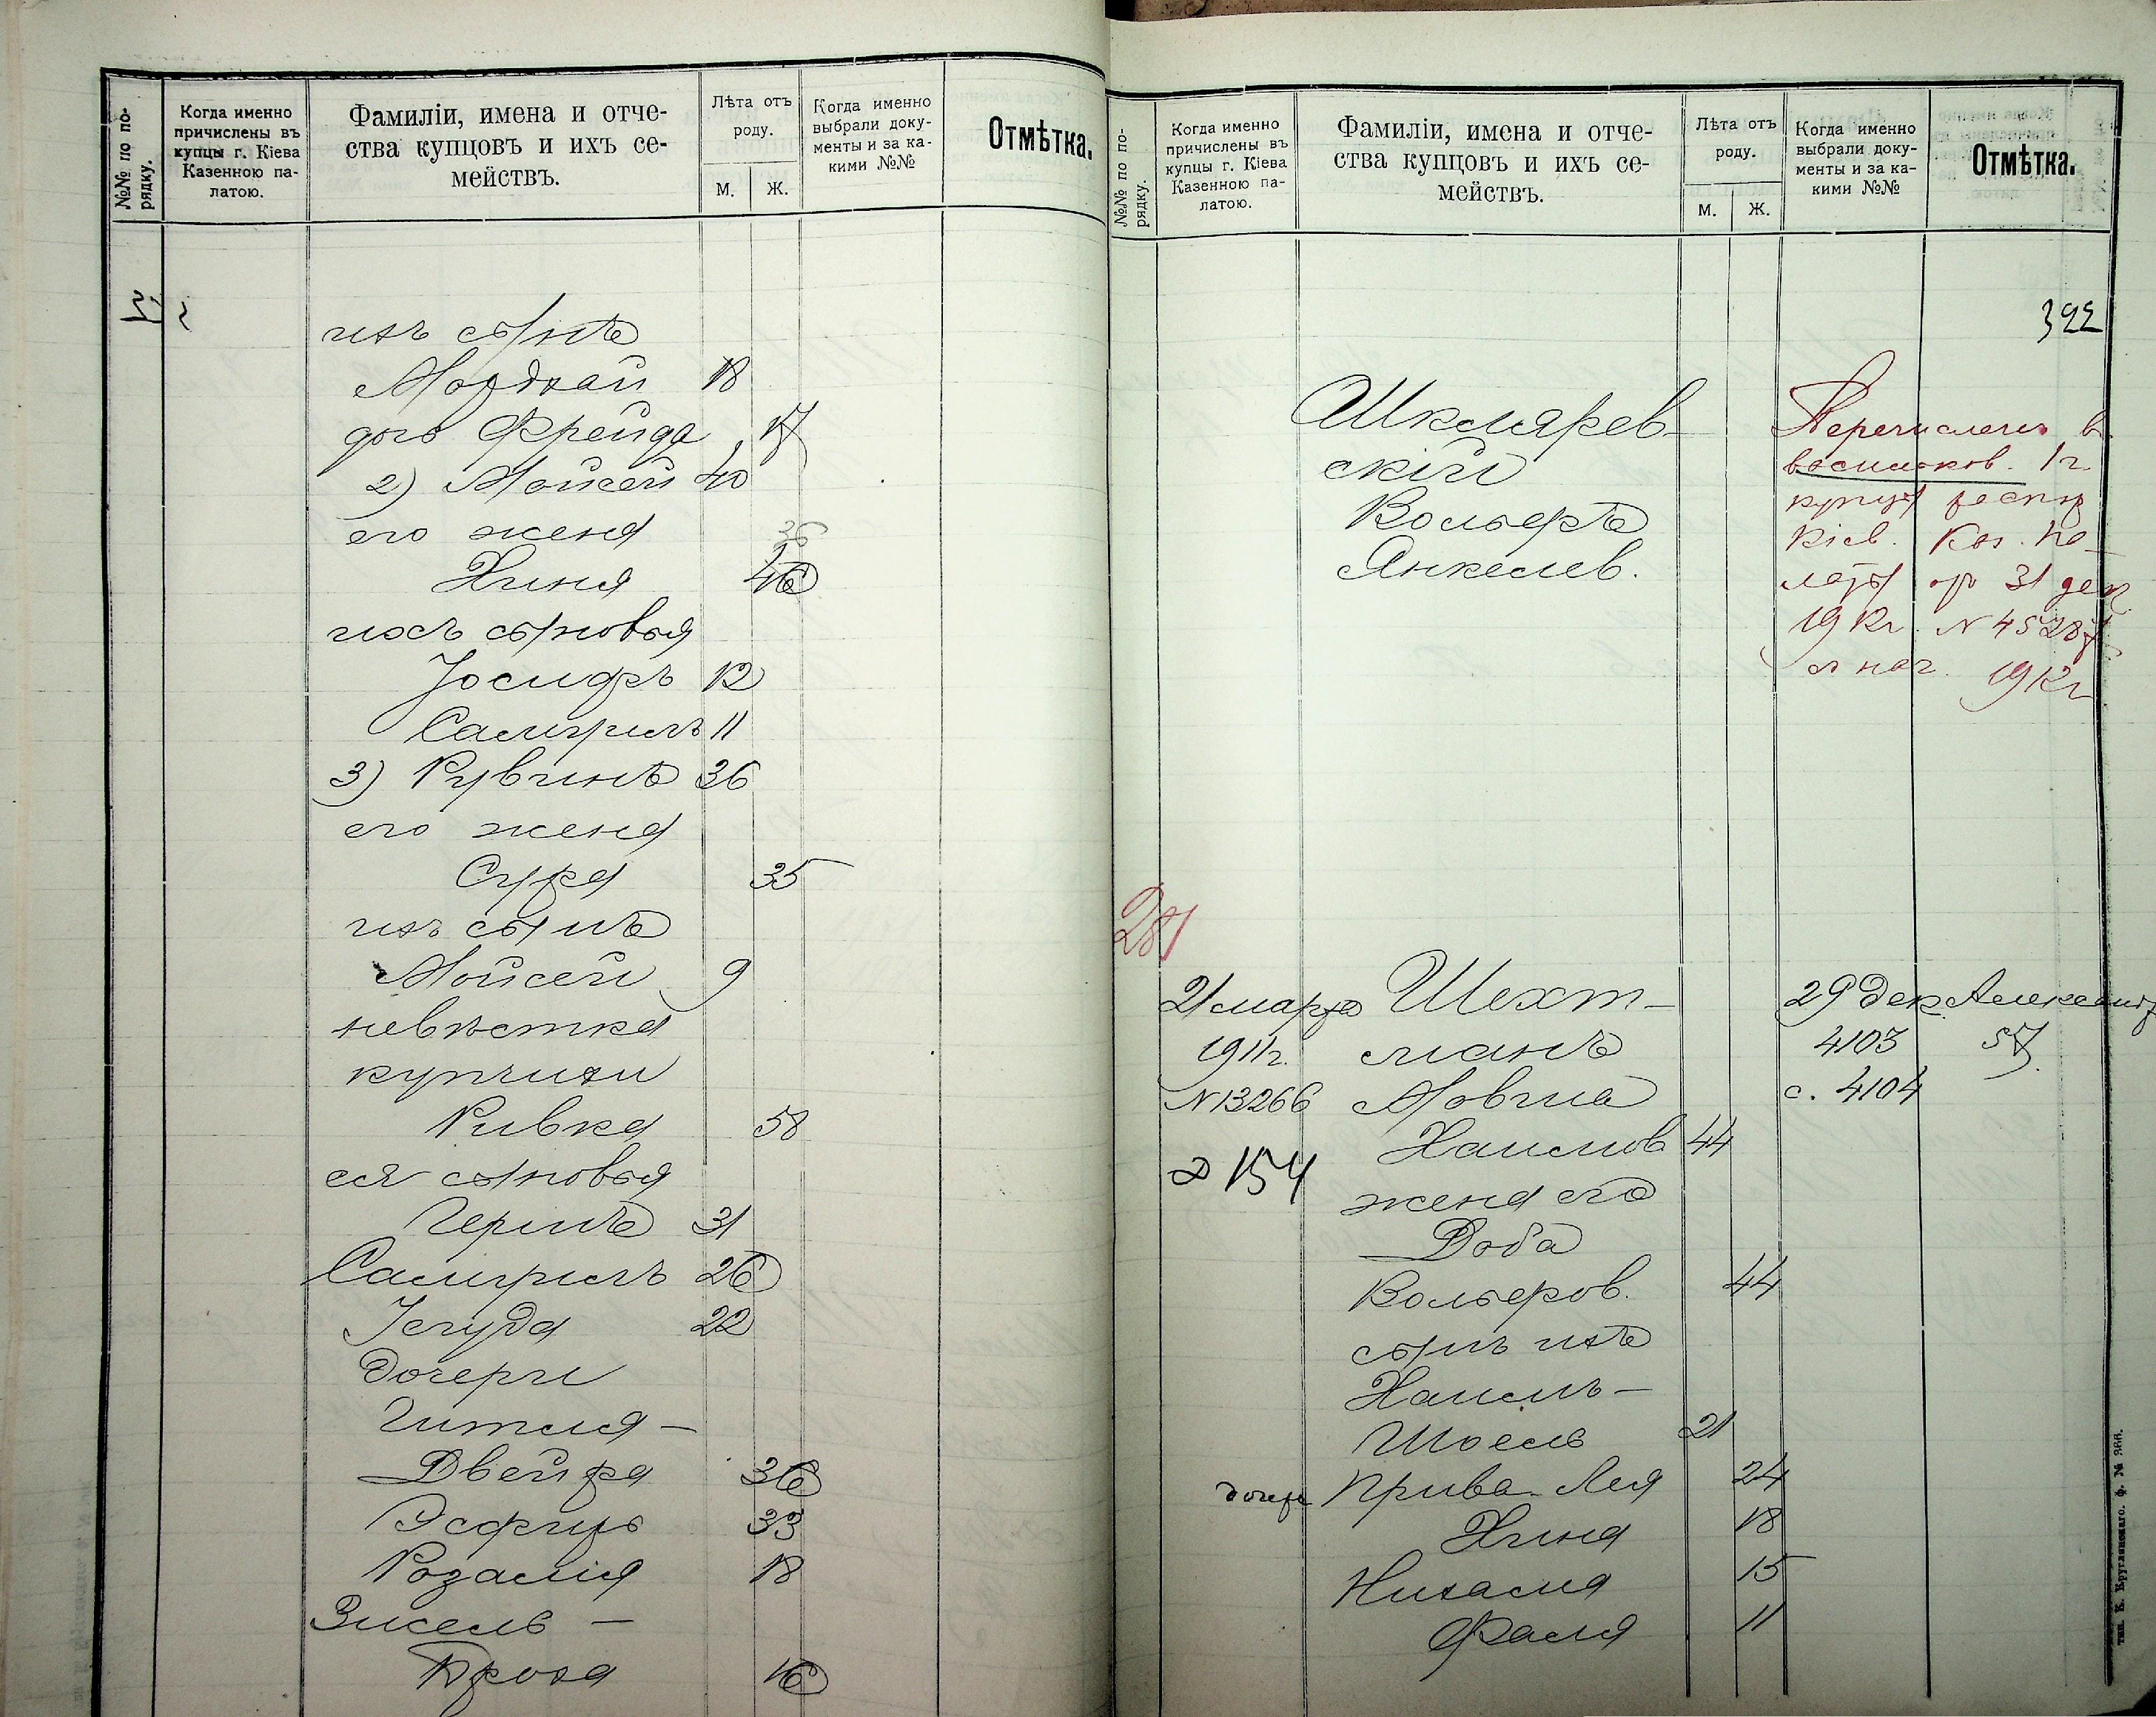 №№ по по-
рядку.
Когда именно
причислены въ
купцы г. Кіева
Казенною па-
латою.
Фамиліи, имена и отче-
ства купцовъ и ихъ се-
мействъ.
Лѣта отъ
роду.
М.
Ж.
Когда именно
выбрали доку-
менты и за ка-
кими №№
Отмѣтка.
ихъ сынъ
Мордхай 18
дочь Фрейда 17
2) Мойсей 40
его жена 36
Хиня 46
ихъ сыновья
Іосифъ 12
Самуилъ 11
3) Рувинъ 36
его жена
Сура 35
ихъ сынъ
Мойсей 9
невѣстка
купчихи
Ривка 58
ея сыновья
Гершъ 31
Самуилъ 26
Іегуда 22
дочери
Гитля-
Двейра 36
Эсфирь 33
Розалія 18
Зисель-
Броха 16
№№ по по-
рядку.
Когда именно
причислены въ
купцы г. Кіева
Казенною па-
латою.
Фамиліи, имена и отче-
ства купцовъ и ихъ се-
мействъ.
Лѣта отъ
роду.
М.
Ж.
Когда именно
выбрали доку-
менты и за ка-
кими №№
Отмѣтка.
322
Шклярев-
скій
Вольфъ
Янкелев.
Перечисленъ в
васильков. 1 г.
купцы распор
Кіев. Каз. Па-
латы отъ 31 дек.
1912г. N 45287
с нач. 1912г
281
21 марта Шехт- 29 дек. Александр
1911г. манъ 4103 57
N 13266 Мовша с. 4104
Хаимов 44
154
жена его
Доба
Вольфов. 44
сынъ ихъ
Хаимъ-
Шоель 21
дочери Прива-Лея 24
Хиня 18
Нихама 15
Фаля 11
тип. К. Круглянскаго. ф. № 366.